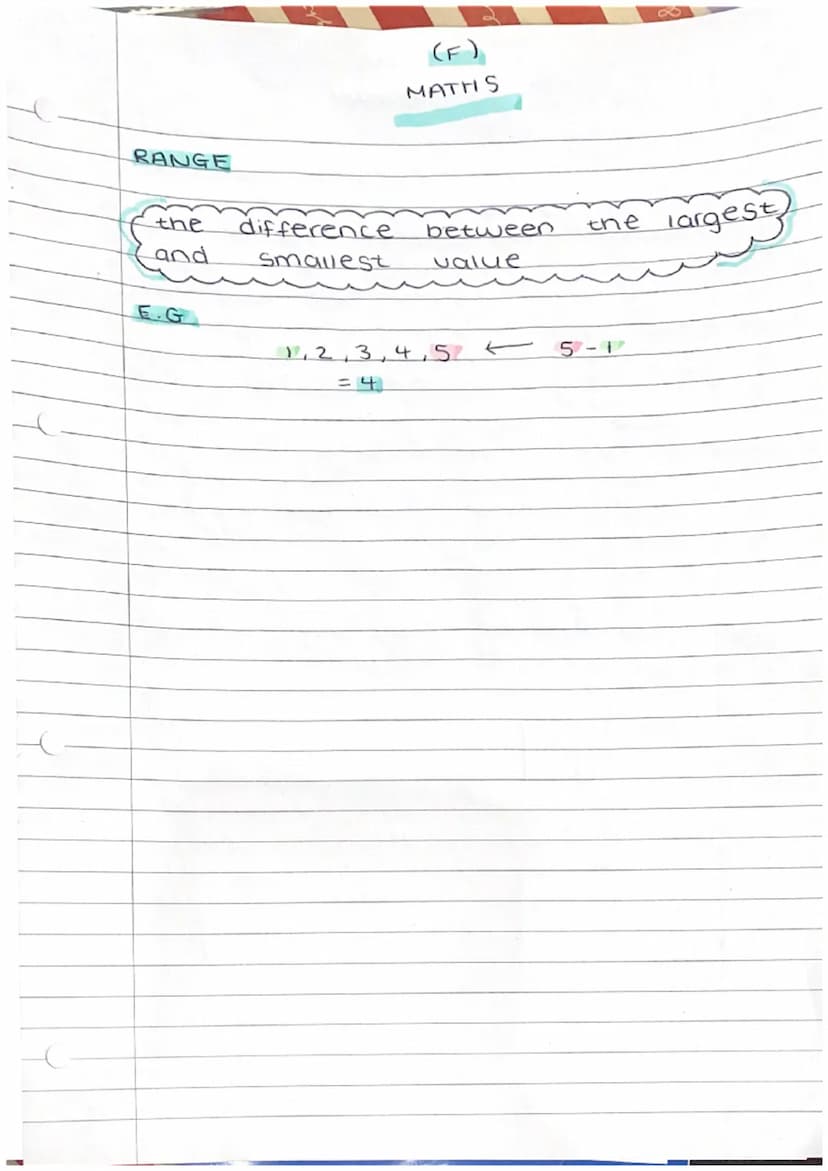 (F)
MATHS
RANGE
the difference between the largest
and smallest value
E.G
1, 2, 3, 4, 5 ← 5 - 1
= 4